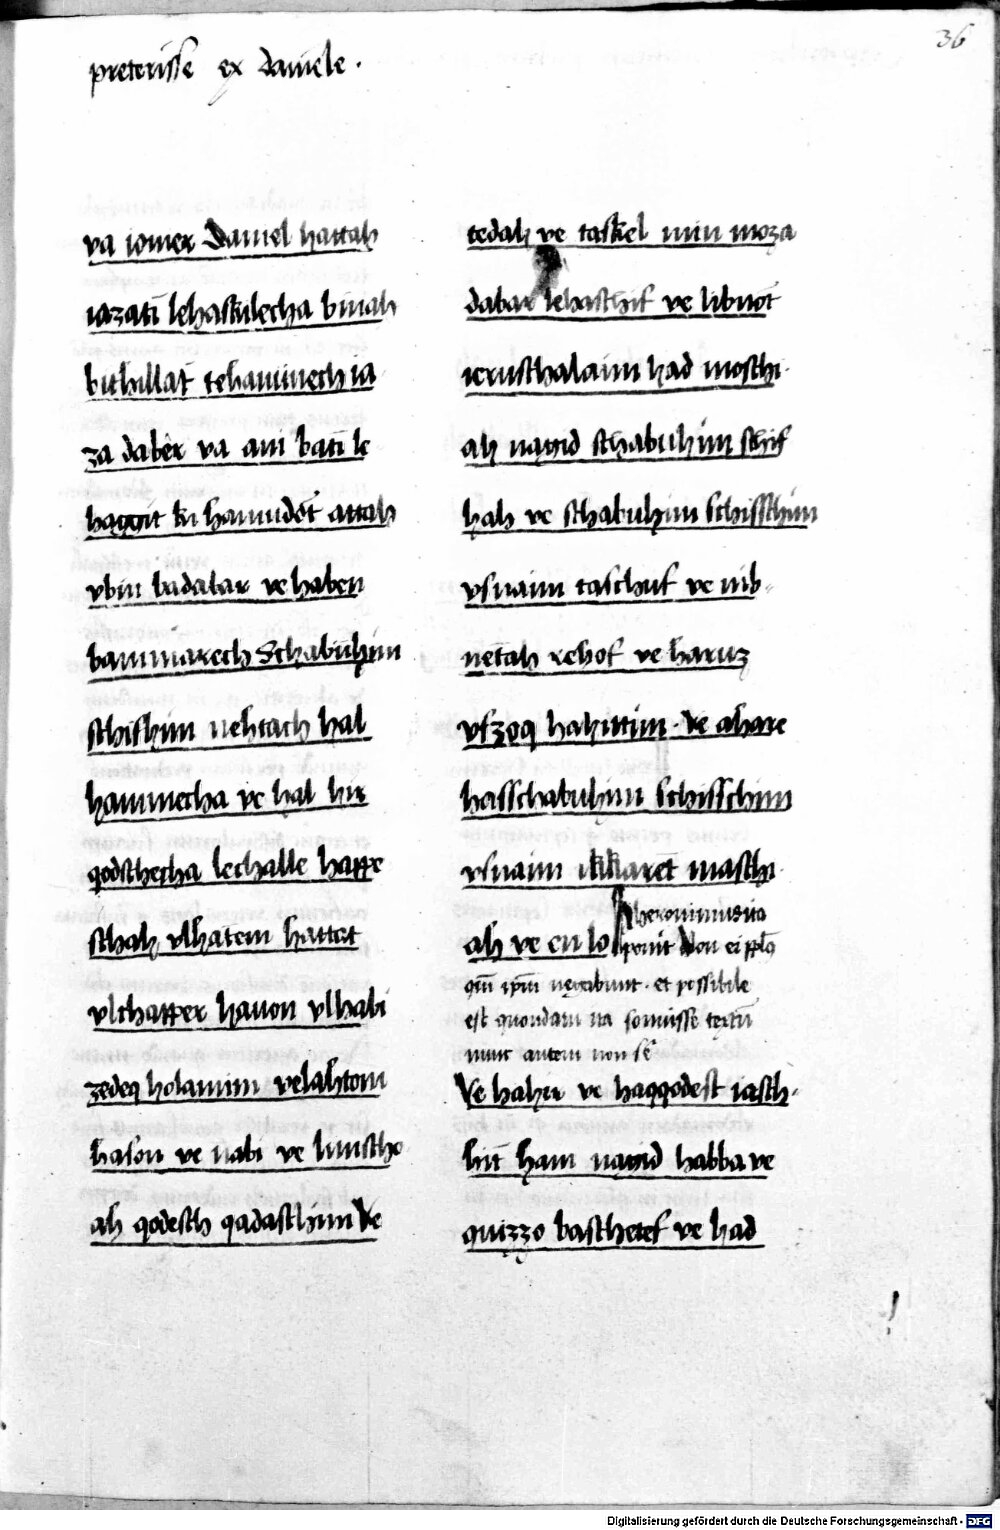 36
preterisse ex daniele .
va iomer Daniel hattah
iazati lehaskilecha binah
bithillat tehaninech ia
za daber va ani bati le
haggit ki hamudot attah
vbin badabar ve haben
bammarech Schabuhim
schifhim nehtach hal
hammecha ve hal hir
qodschecha lechalle happe
schah vlhatem hattet
vlchapper havon vlhabi
zedeq holamim velahtom
hason ve nabi ve limscho
ah qodesch qadaschim Ve
tedah ve taskel min moza
dabar lehaschif ve libnot
ierusthalaim had moschi
ah nagid schabuhim schif
hah ve schabuhim schisschim
vsnaim taschuf ve nib-
netah rehof ve haruz
vfzoq hahittim . ve ahare
hasschabuhim schisschim
vsnaim ikkaret maschi
ah ve en lo
heronimus ita
ponit Non ei pplus
qui ipm negabunt . et possibile
est quondam ita fouisse
nunc autem non
Ve hahir ve haqqodest iasch-
hit ham nagid habba ve
quizzo baschetef ve had
Digitalisierung gefördert durch die Deutsche Forschungsgemeinschaft - DFG